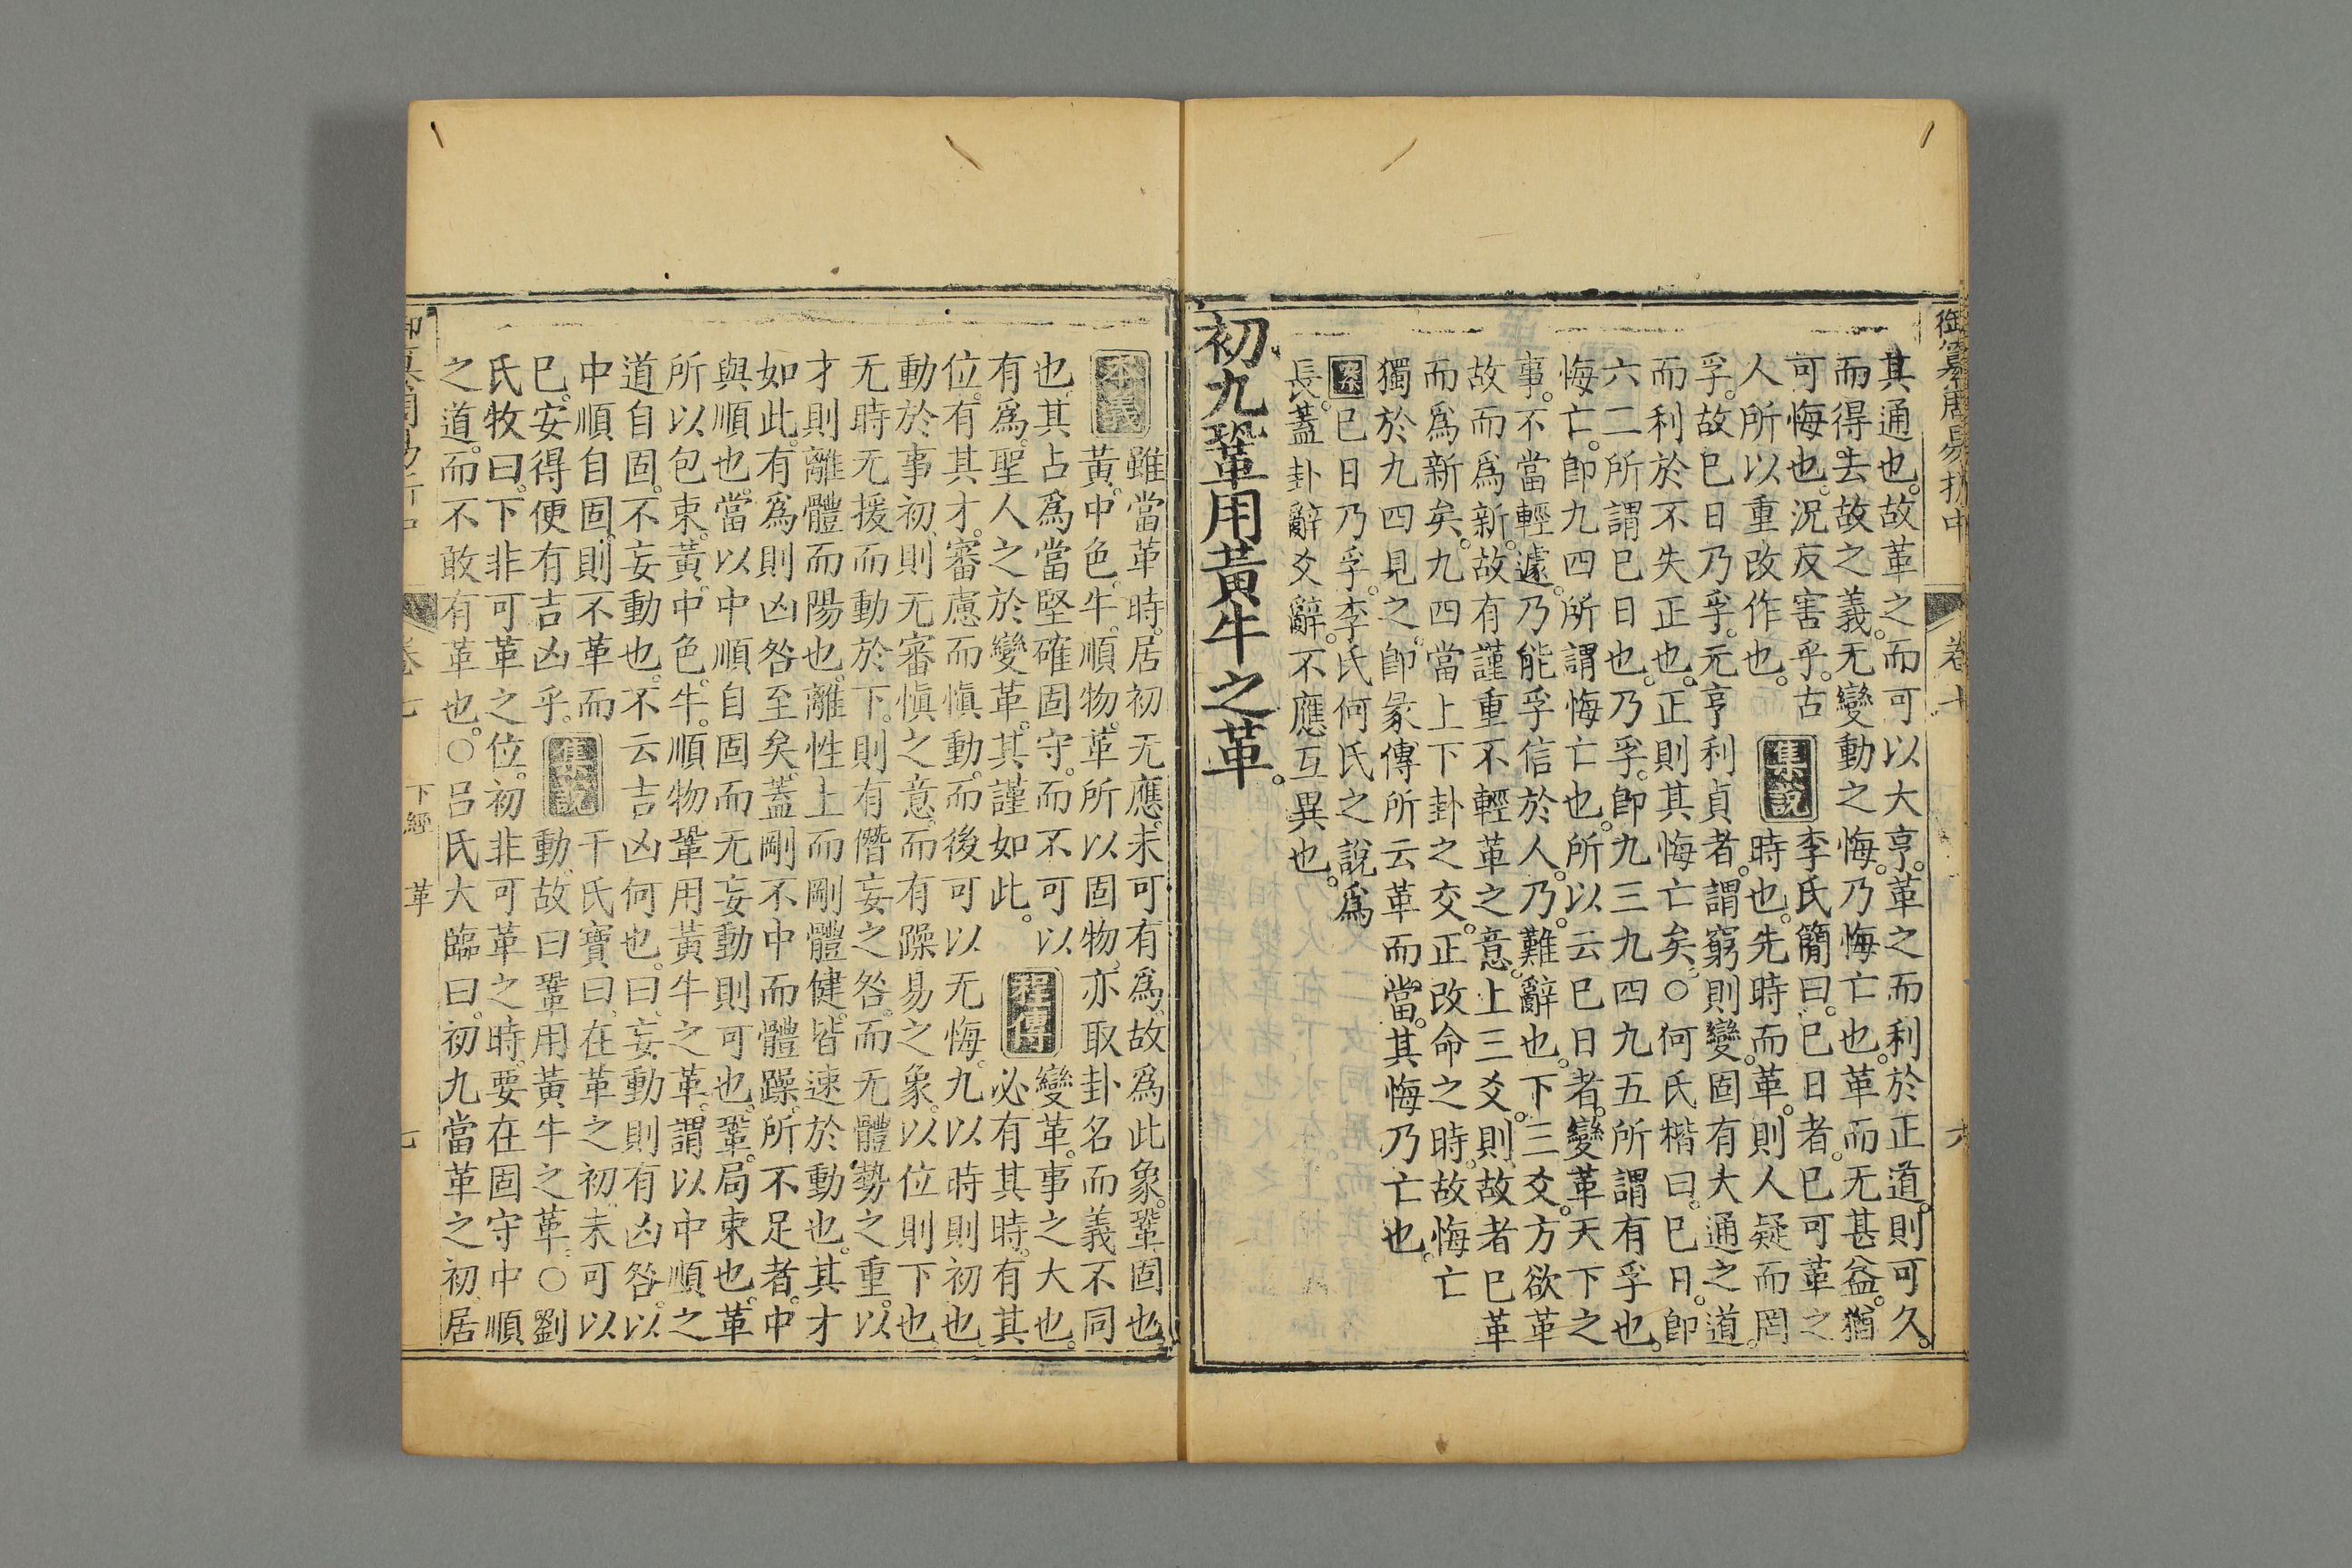 御纂周易折中 卷七 六
其通也。故革之而可以大亨。革之而利於正道。則可久。
而得去故之義。无變動之悔。乃悔亡也。革。而无甚益。猶
可悔也。況反害乎。古 集說 李氏簡曰。巳日者。巳可革之
人所以重改作也。 時也。先時而革。則人疑而罔
孚。故巳日乃孚。元亨利貞者。謂窮則變。固有大通之道。
而利於不失正也。正則其悔亡矣。○何氏楷曰。巳日。卽
六二所謂巳日也。乃孚。卽九三九四九五所謂有孚也。
悔亡。卽九四所謂悔亡也。所以云巳日者。變革天下之
事。不當輕遽。乃能孚信於人。乃。難辭也。下三爻。方欲革
故而爲新。故有謹重不輕革之意。上三爻。則故者巳革
而爲新矣。九四當上下卦之交。正改命之時。故悔亡
獨於九四見之。卽彖傳所云革而當。其悔乃亡也。
案 巳日乃孚。李氏何氏之說爲
長。蓋卦辭爻辭。不應互異也。
初九。鞏用黃牛之革。
本義 雖當革時。居初无應。未可有爲。故爲此象。鞏固也
黃。中色。牛。順物。革所以固物。亦取卦名而義不同
也。其占爲當堅確固守。而不可以 程傳 變革。事之大也。
有爲。聖人之於變革。其謹如此。 必有其時。有其
位。有其才。審慮而愼動。而後可以无悔。九以時則初也
動於事初。則无審愼之意。而有躁易之象。以位則下也
无時无援而動於下。則有僭妄之咎。而无體勢之重。以
才則離體而陽也。離性上而剛體健。皆速於動也。其才
如此。有爲則凶咎至矣。蓋剛不中而體躁。所不足者。中
與順也。當以中順自固而无妄動則可也。鞏。局束也。革
所以包束。黃。中色。牛。順物鞏用黃牛之革。謂以中順之
道自固。不妄動也。不云吉凶何也。曰。妄動則有凶咎。以
中順自固。則不革而 集說 干氏寶曰。在革之初。未可以
巳。安得便有吉凶乎。 動。故曰鞏用黃牛之革。○劉
氏牧曰。下非可革之位。初非可革之時。要在固守中順
之道。而不敢有革也。○呂氏大臨曰。初九當革之初。居
卷七 下經 革 七